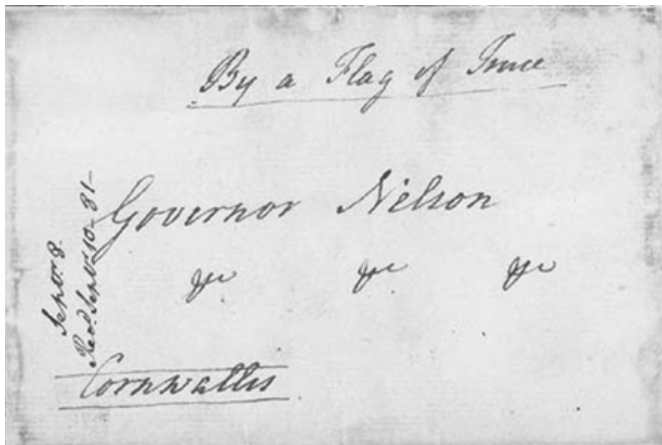 By a Flag of Truce
Governor Nelson
&c &c &c
Septr. 8.
Recd. Septr. 10 - 81 -
Cornwallis